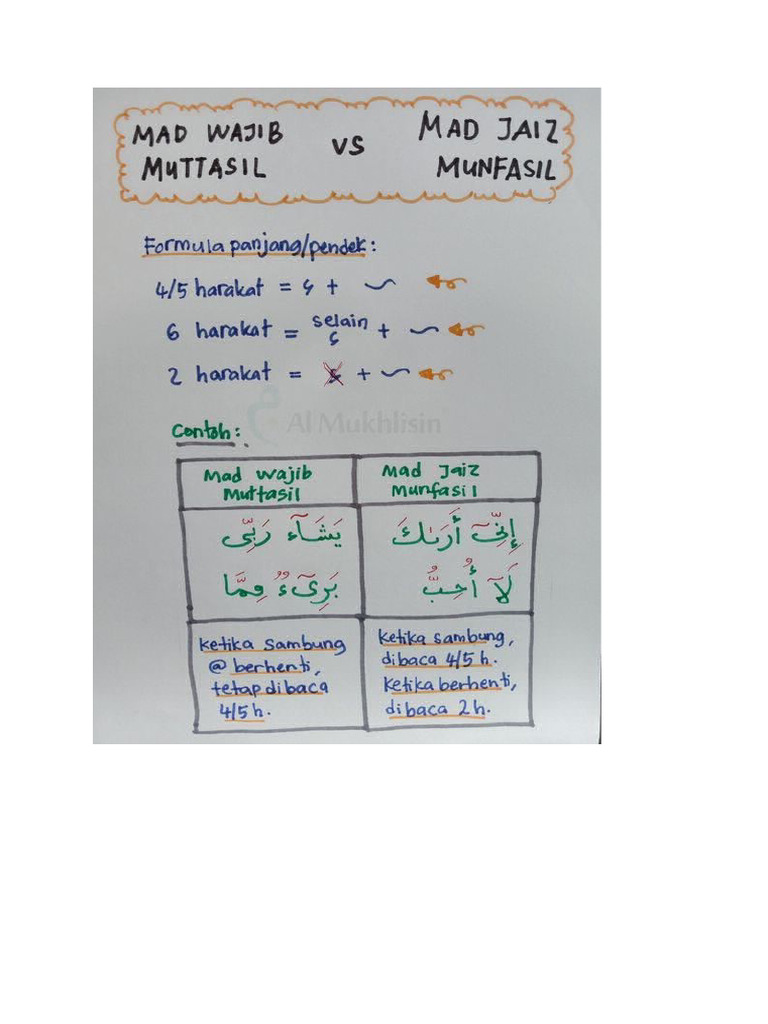 MAD WAJIB
MUTTASIL
VS
MAD JAIZ
MUNFASIL
Formula panjang/pendek:
4/5 harakat = ء + ~
6 harakat = selain ء + ~
2 harakat = ء + ~
Al Mukhlisin
Contoh:
Mad Wajib
Muttasil
Mad Jaiz
Munfasil
يَشَآء رَبِّى
بَرِىٓءٌ مِّمَّا
إِنِّىٓ أَرَىٰكَ
لَآ أُحِبُّ
ketika sambung
@ berhenti,
tetap dibaca
4/5 h.
ketika sambung,
dibaca 4/5 h.
Ketika berhenti,
dibaca 2 h.